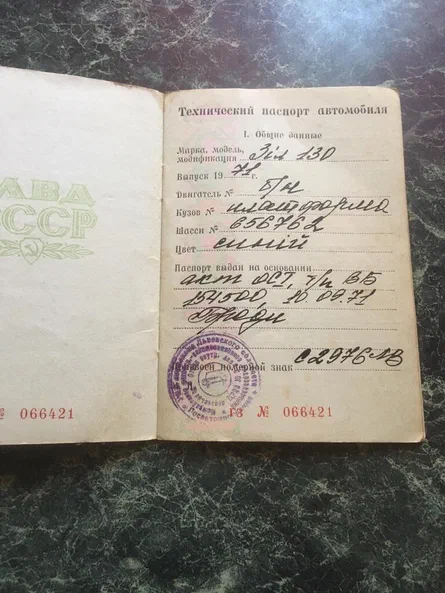 АВА
СССР
№ 066421
Технический паспорт автомобиля
I. Общие данные
Марка, модель,
модификация Зіл 130
Выпуск 1971 г.
Двигатель № б/н
Кузов № платформа
Шасси № 656762
Цвет синий
Паспорт выдан на основании
акт ОСТ, т/п ВБ
154500, 10.09.71
Броди
Присвоен номерной знак с2976ЛВ
ГЗ № 066421